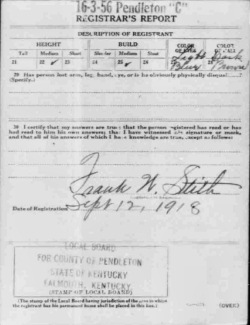 16-3-56 Pendleton "C"
REGISTRAR'S REPORT
DESCRIPTION OF REGISTRANT
HEIGHT BUILD COLOR OF EYES COLOR OF HAIR
Tall Medium Short Slender Medium Stout
21 22 ✓ 23 24 25 ✓ 26 27 Blue 28
29 Has person lost arm, leg, hand, eye, or is he obviously physically disqualified?
(Specify.)
30 I certify that my answers are true; that the person registered has read or has
had read to him his own answers; that I have witnessed his signature or mark,
and that all of his answers of which I have knowledge are true, except as follows:
Frank W. Stith
Date of Registration Sept 12, 1918
LOCAL BOARD
FOR COUNTY OF PENDLETON
STATE OF KENTUCKY
FALMOUTH, KENTUCKY
(STAMP OF LOCAL BOARD)
(The stamp of the Local Board having jurisdiction of the area in which
the registrant has his permanent home shall be placed in this box.)
(OVER)